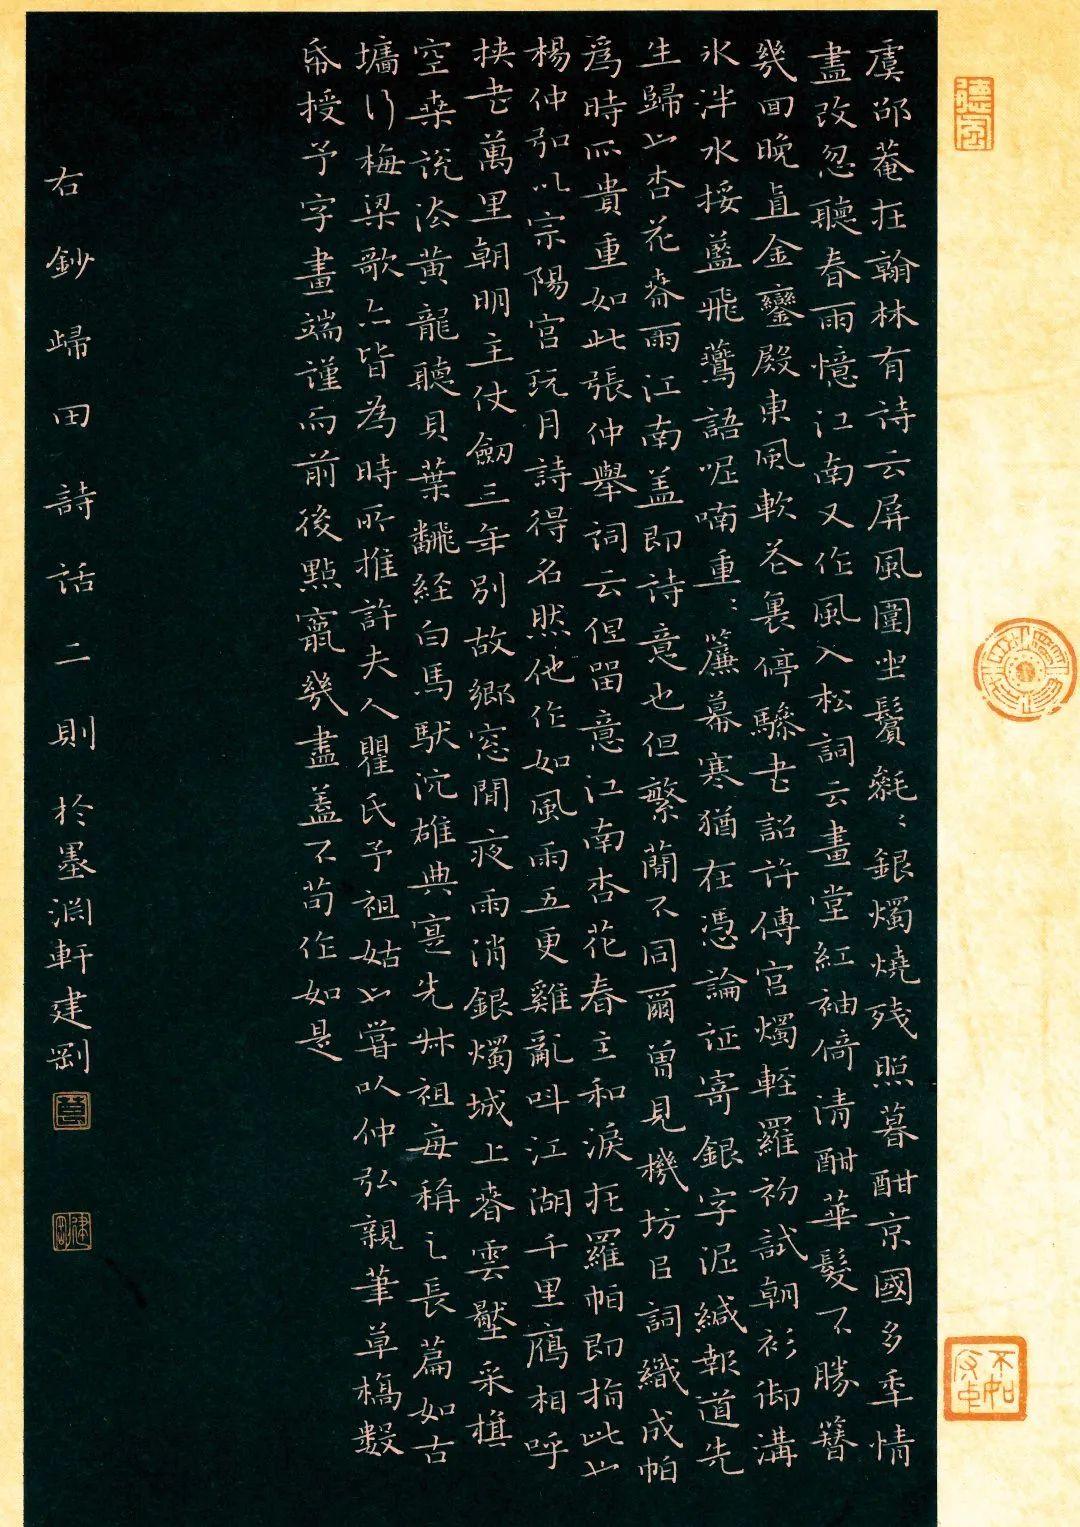 虞邵菴在翰林有詩云屏風圍坐鬢毿〻銀燭燒殘照暮酣京國多年情
盡改忽聽春雨憶江南又作風入松詞云畫堂紅袖倚清酣華髮不勝簪
幾回晚直金鑾殿東風軟花裏停驂书詔許傳宫燭輕羅初試朝衫御溝
氷泮水挼藍飛鷰語呢喃重〻簾幕寒猶在憑論证寄銀字泥緘報道先
生歸也杏花春雨江南盖即詩意也但繁蕳不同爾曽見機坊以詞織成帕
爲時所貴重如此張仲舉詞云但留意江南杏花春主和淚在羅帕即指此也
楊仲弘以宗陽宫玩月詩得名然他作如風雨五更雞亂叫江湖千里鴈相呼
挟书萬里朝明主仗劔三年别故鄉窓間夜雨消銀燭城上春雲壓采旗
空桒說法黄龍聽貝葉飜経白馬馱沉雄典寔先叔祖每稱之長篇如古
墻行梅梁歌亦皆為時所推許夫人瞿氏予祖姑也嘗以仲弘親筆草槗數
帋授予字畫端谨而前後點竄幾盡葢不茍作如是
右鈔歸田詩話二則於墨渊軒建剛